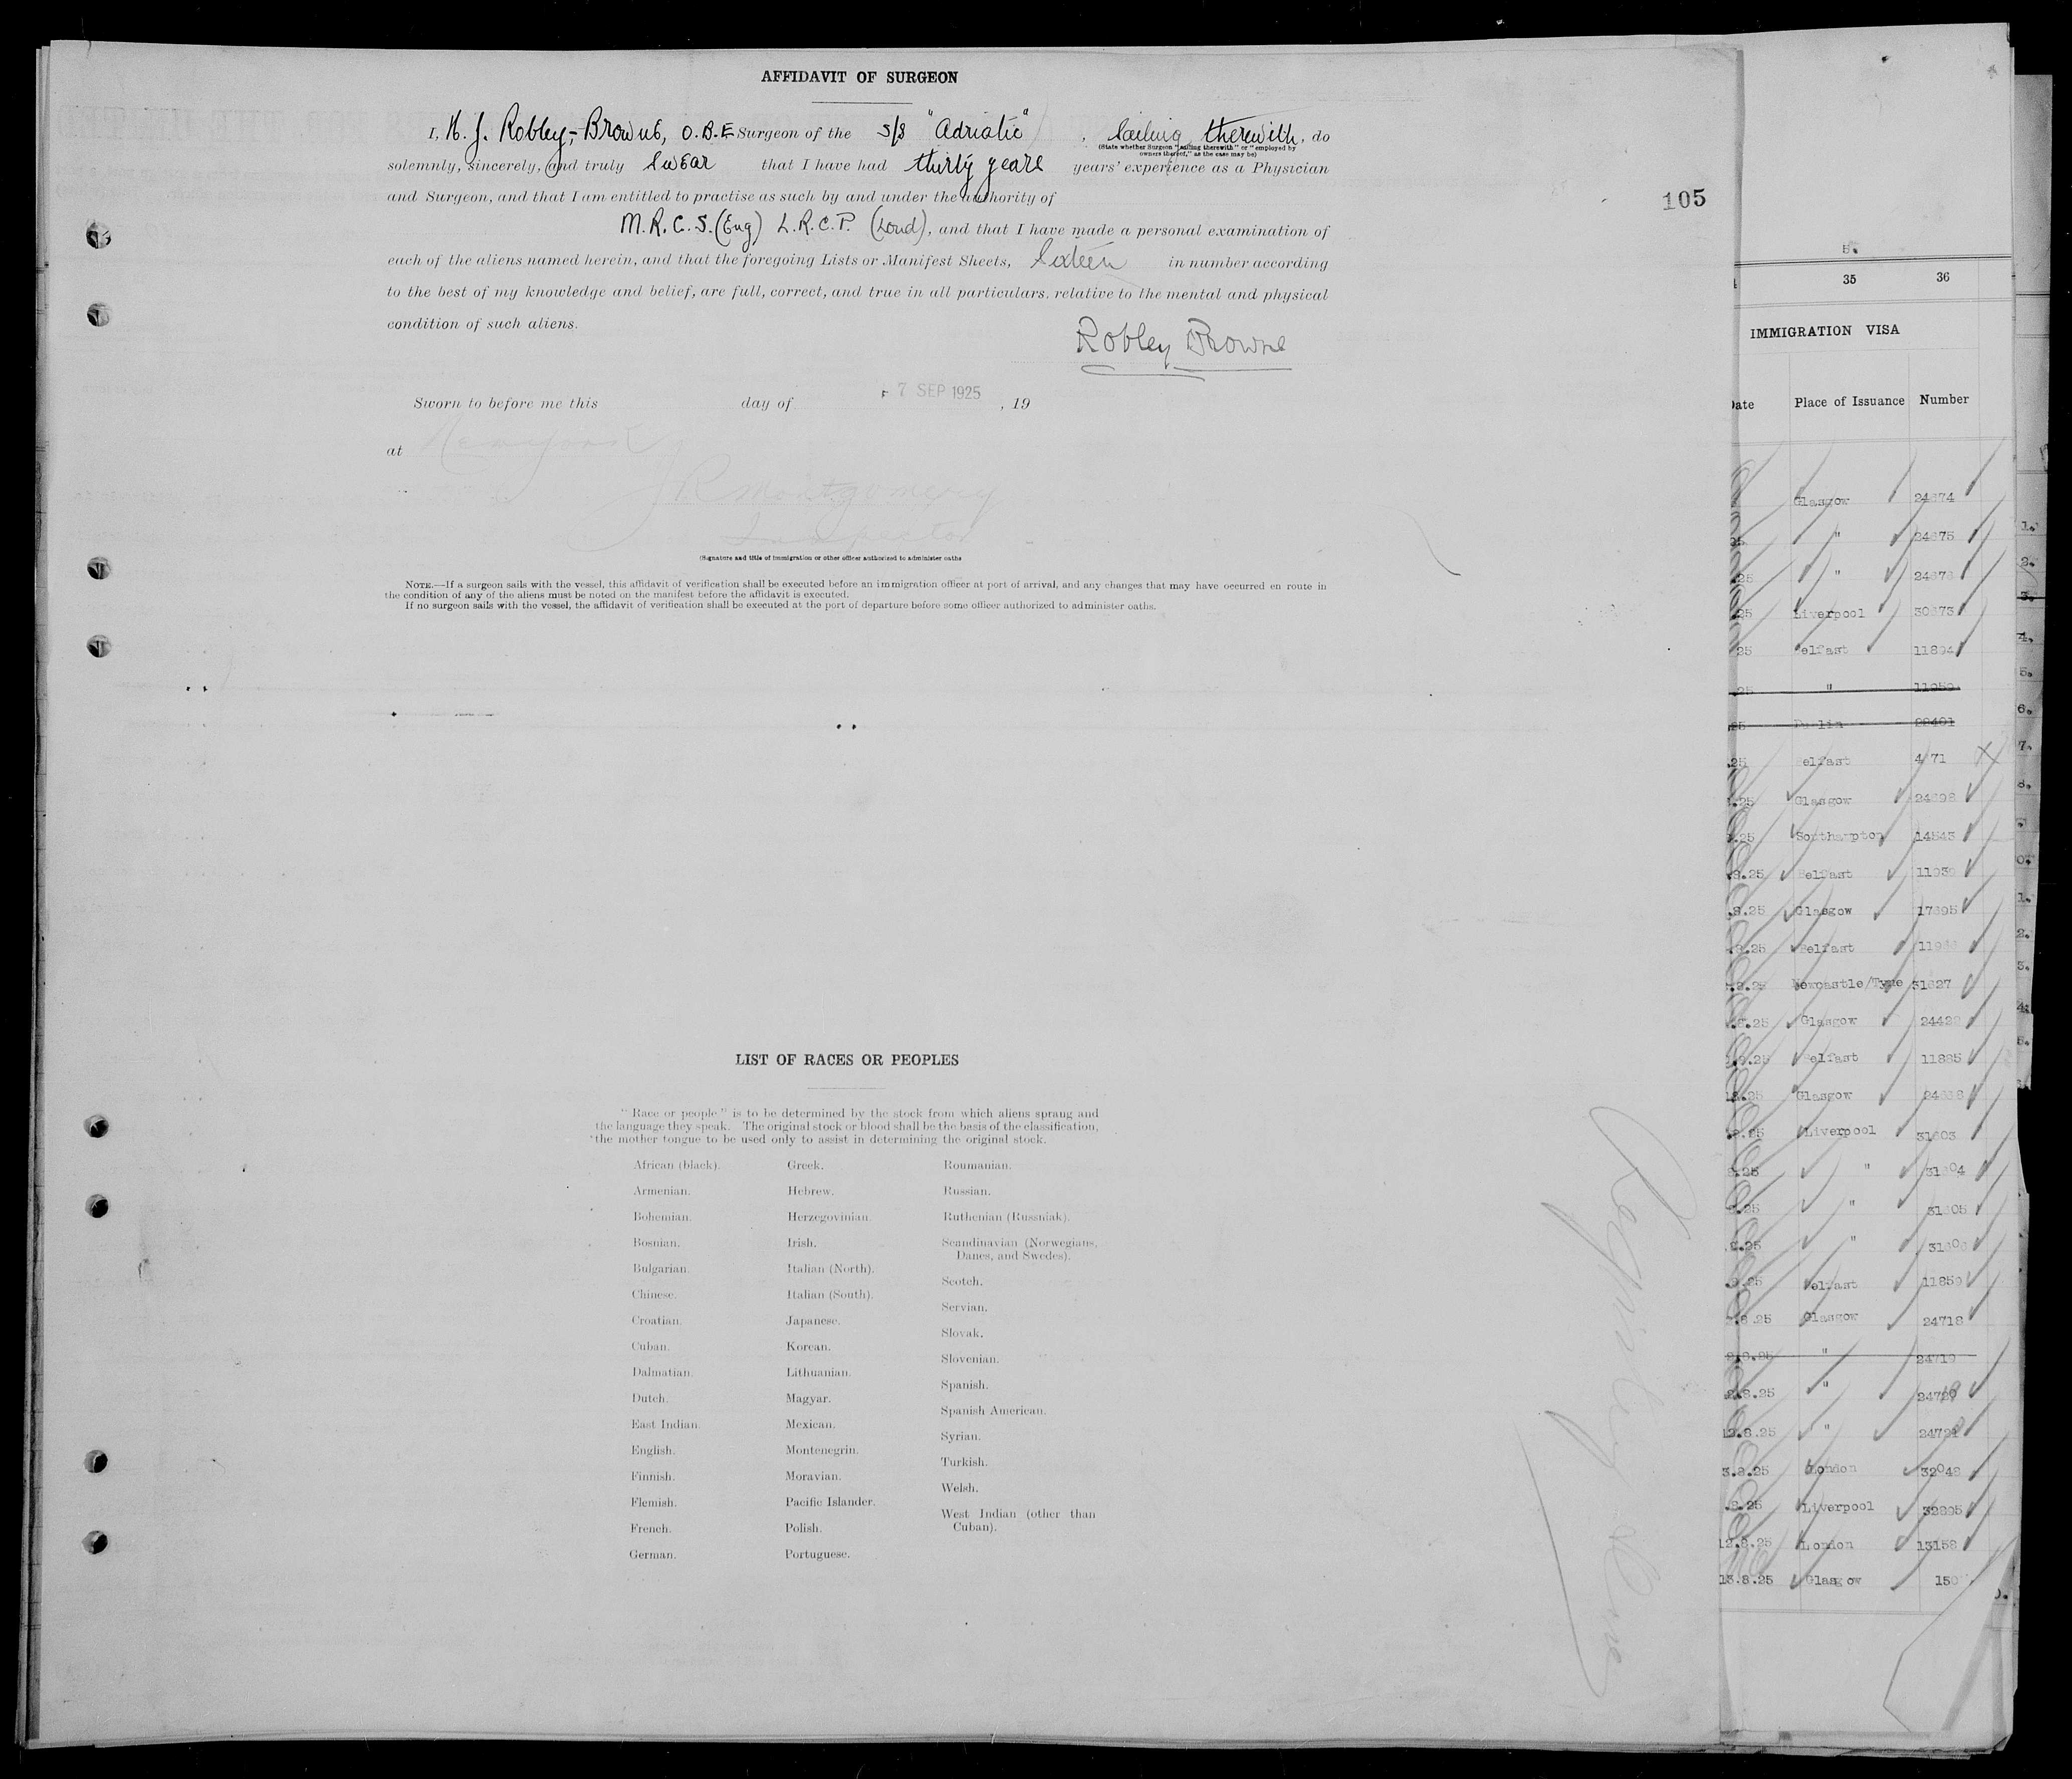 AFFIDAVIT OF SURGEON
I, H. J. Robley-Browne, O.B.E Surgeon of the s/s "Adriatic", sailing therewith, do
(State whether Surgeon "sailing therewith" or "employed by
owners thereof," as the case may be)
solemnly, sincerely, and truly swear that I have had thirty years years' experience as a Physician
and Surgeon, and that I am entitled to practise as such by and under the authority of
M.R.C.S. (Eng) L.R.C.P. (Lond), and that I have made a personal examination of
each of the aliens named herein, and that the foregoing Lists or Manifest Sheets, Sixteen in number according
to the best of my knowledge and belief, are full, correct, and true in all particulars, relative to the mental and physical
condition of such aliens.
Robley Browne
Sworn to before me this day of 7 SEP 1925, 19
at New York
J R Montgomery
Inspector
(Signature and title of immigration or other officer authorized to administer oaths
NOTE.—If a surgeon sails with the vessel, this affidavit of verification shall be executed before an immigration officer at port of arrival, and any changes that may have occurred en route in
the condition of any of the aliens must be noted on the manifest before the affidavit is executed.
If no surgeon sails with the vessel, the affidavit of verification shall be executed at the port of departure before some officer authorized to administer oaths.
105
LIST OF RACES OR PEOPLES
"Race or people" is to be determined by the stock from which aliens sprang and
the language they speak. The original stock or blood shall be the basis of the classification,
the mother tongue to be used only to assist in determining the original stock.
African (black).
Armenian.
Bohemian.
Bosnian.
Bulgarian.
Chinese.
Croatian.
Cuban.
Dalmatian.
Dutch.
East Indian.
English.
Finnish.
Flemish.
French.
German.
Greek.
Hebrew.
Herzegovinian.
Irish.
Italian (North).
Italian (South).
Japanese.
Korean.
Lithuanian.
Magyar.
Mexican.
Montenegrin.
Moravian.
Pacific Islander.
Polish.
Portuguese.
Roumanian.
Russian.
Ruthenian (Russniak).
Scandinavian (Norwegians,
Danes, and Swedes).
Scotch.
Servian.
Slovak.
Slovenian.
Spanish.
Spanish American.
Syrian.
Turkish.
Welsh.
West Indian (other than
Cuban).
5.
35 36
IMMIGRATION VISA
Date Place of Issuance Number
Glasgow 24674
" 24675
25 "
25 Liverpool 30673
25 Belfast 11894
25 "
25 Dublin
25 Belfast
.25 Glasgow 24698
.25 Southampton 14543
.8.25 Belfast
.8.25 Glasgow 17695
.8.25 Belfast
.8.25 Newcastle/Tyne 31627
.8.25 Glasgow
.8.25 Belfast 11885
.25 Glasgow
.8.25 Liverpool 31603
.25 " 31604
.25 " 31605
.8.25 "
.8.25 Belfast 11859
.8.25 Glasgow 24718
.8.25 " 24719
.8.25 "
12.8.25 "
3.8.25 London 32048
.8.25 Liverpool 32695
12.8.25 London 13158
13.8.25 Glasgow